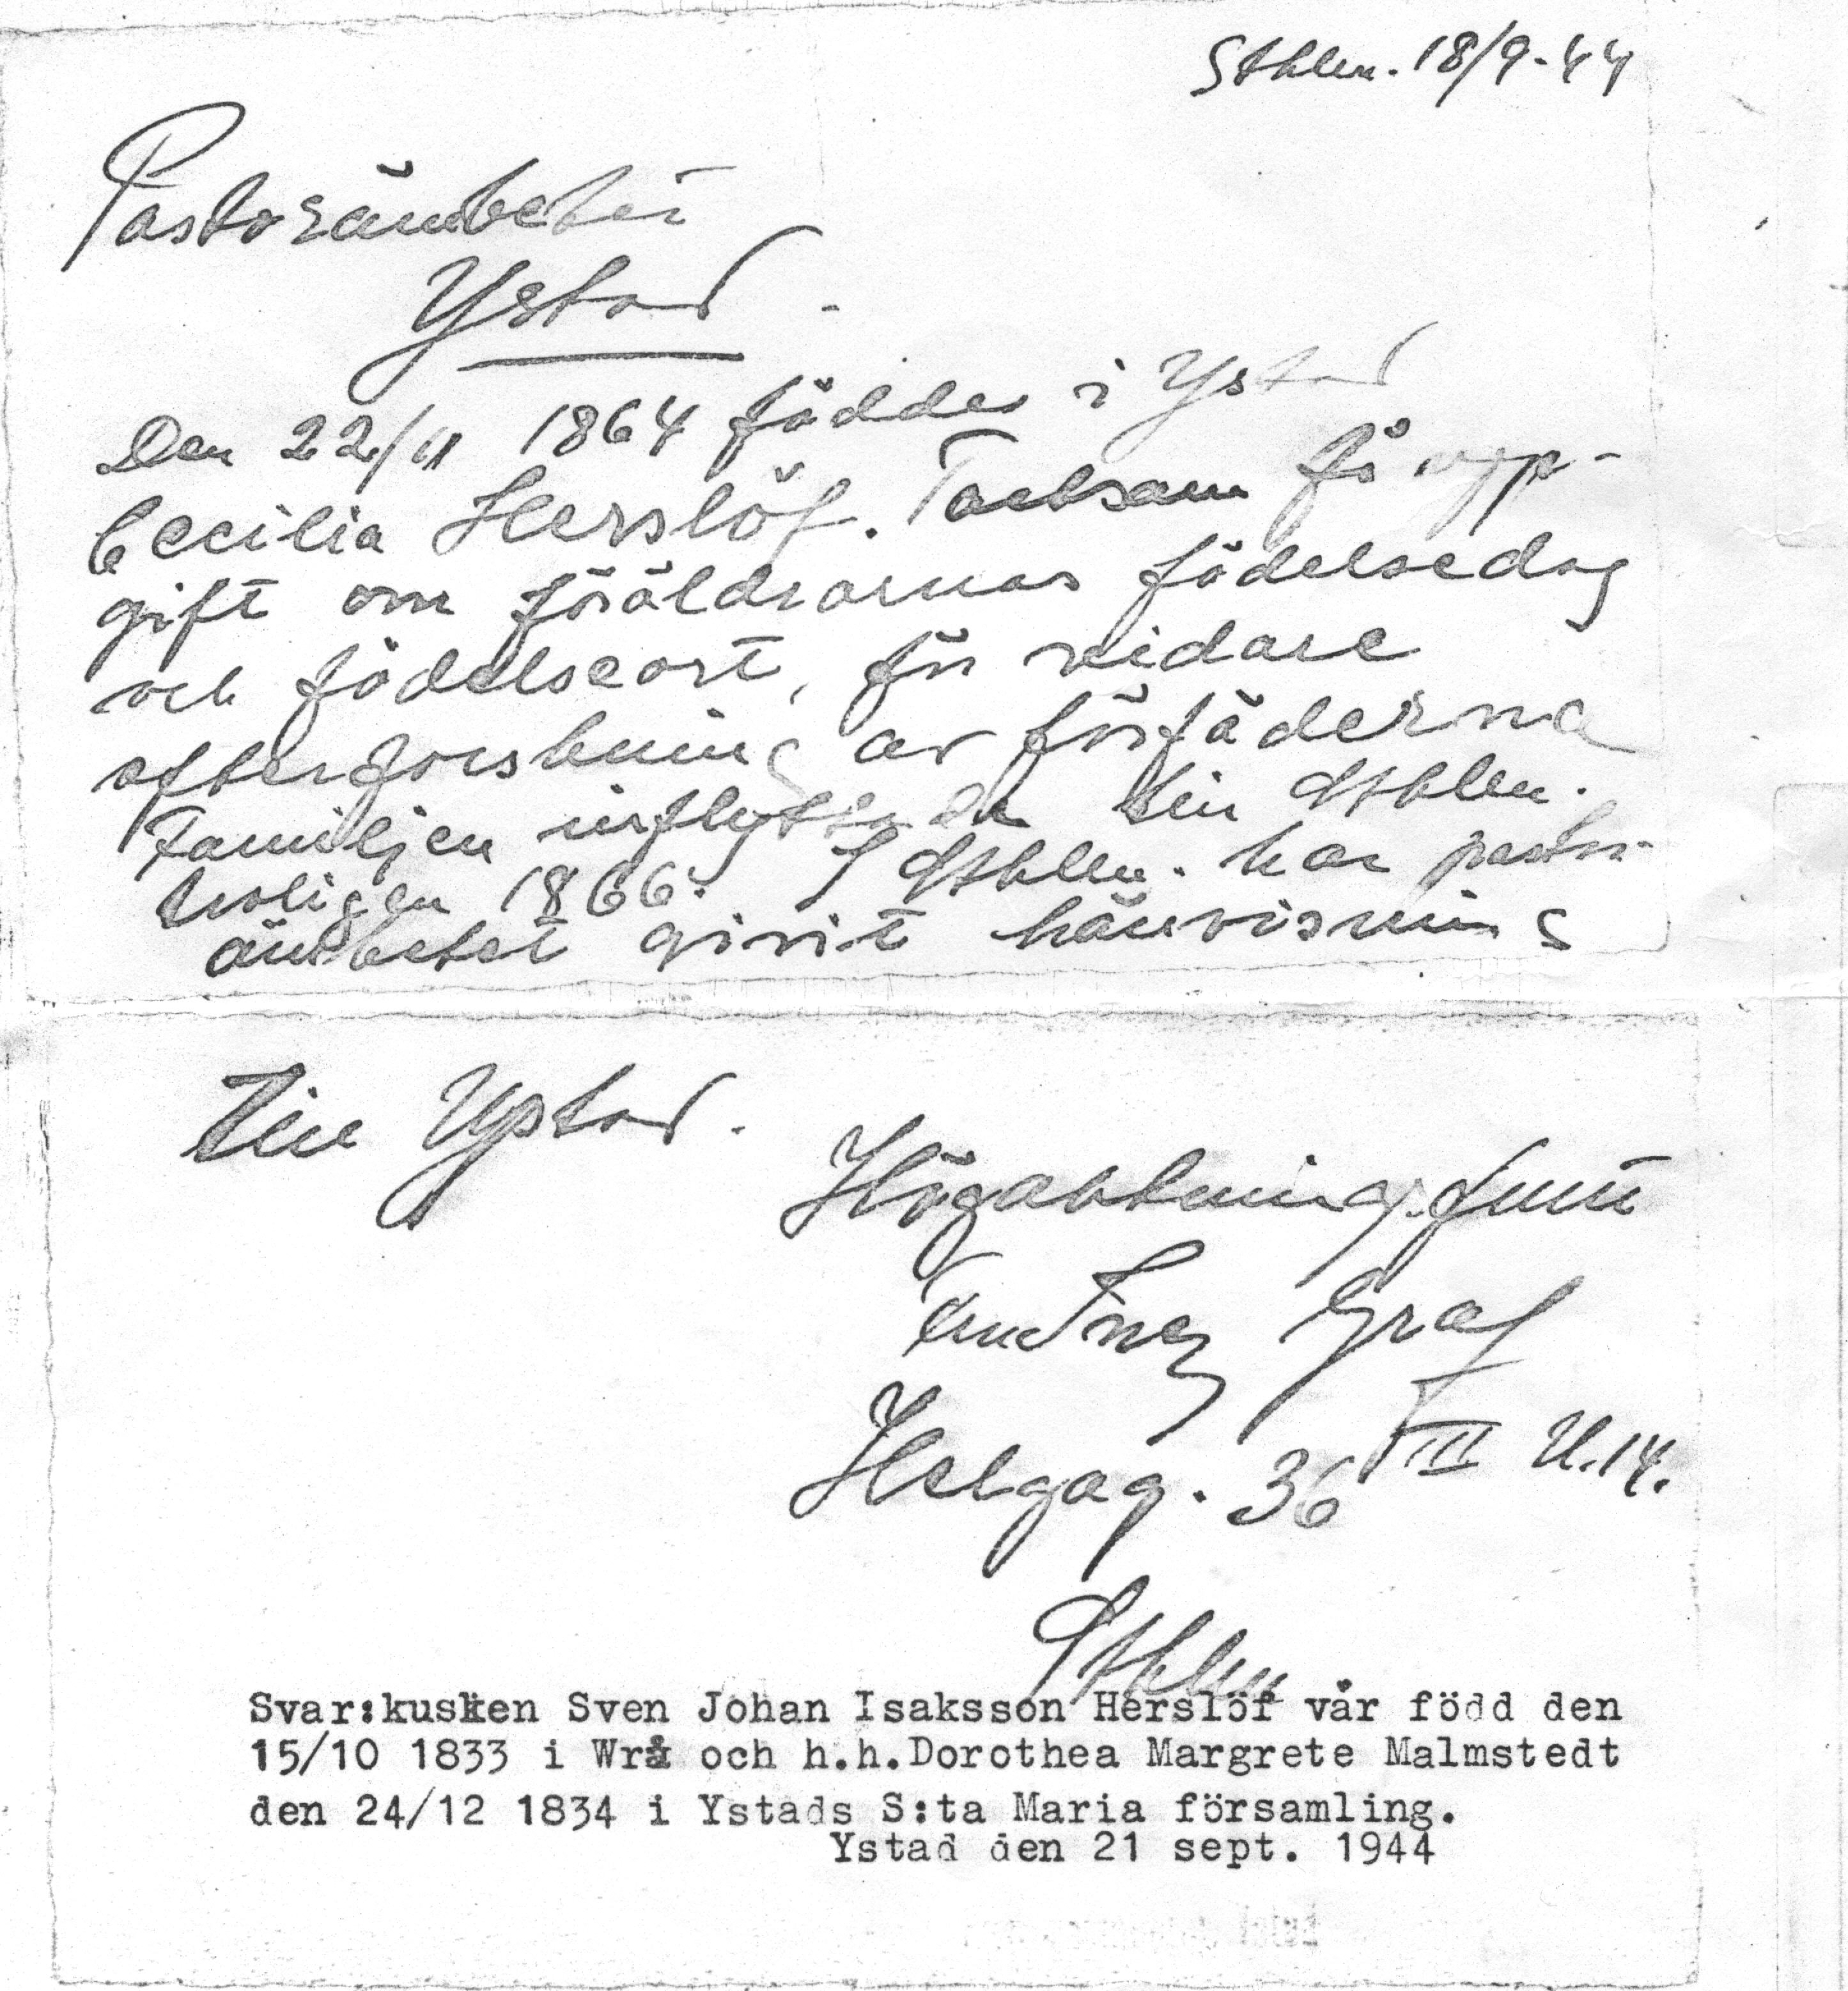 Sthlm. 18/9-44
Pastorämbetet
Ystad.
Den 22/11 1864 föddes i Ystad
Cecilia Herslöf. Tacksam få upp-
gift om föräldrarnas födelsedag
och födelseort, för vidare
efterforskning av förfäderna
Familjen inflyttade till Sthlm.
troligen 1866. I Sthlm. har pastors-
ämbetet givit hänvisning
till Ystad.
Högaktningsfullt
Fru Inez Graf
Helgag. 36 III
Sthlm
Svar:kusken Sven Johan Isaksson Herslöf var född den
15/10 1833 i Wrå och h.h.Dorothea Margrete Malmstedt
den 24/12 1834 i Ystads S:ta Maria församling.
Ystad den 21 sept. 1944